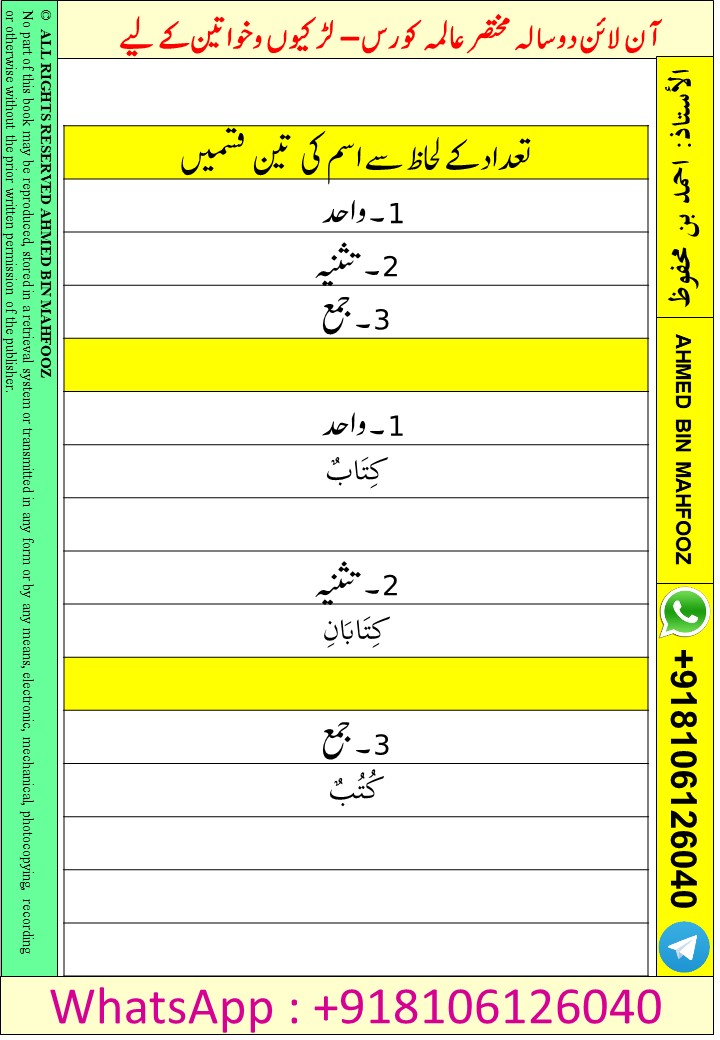 آن لائن دو سالہ مختصر عالمہ کورس – لڑکیوں و خواتین کے لیے
تعداد کے لحاظ سے اسم کی تین قسمیں
1۔ واحد
2۔ تثنیہ
3۔ جمع
1۔ واحد
كِتَابٌ
2۔ تثنیہ
كِتَابَانِ
3۔ جمع
كُتُبٌ
الأستاذ: احمد بن محفوظ
AHMED BIN MAHFOOZ
+918106126040
© ALL RIGHTS RESERVED AHMED BIN MAHFOOZ
No part of this book may be reproduced, stored in a retrieval system or transmitted in any form or by any means, electronic, mechanical, photocopying, recording
or otherwise without the prior written permission of the publisher.
WhatsApp : +918106126040